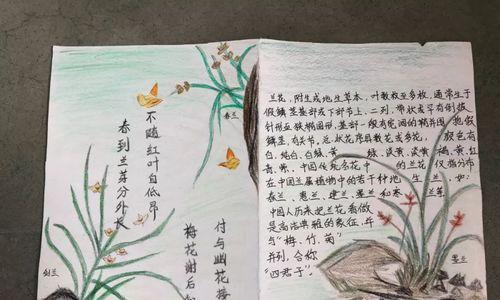 春到兰芽分外长
不随红叶自低昂
梅花谢后
付与幽花接
春兰
剑兰
兰花,附生或地生草本,叶数枚至多枚,通常生于
假鳞茎基部或下部节上,二列,带状或罕有倒披
针形至狭椭圆形,基部一般有宽阔的鞘并围抱假
鳞茎,有关节。总状花序具数花或多花,颜色有
白、纯白、白绿、黄、淡黄、褐、黄、红
青、紫。中国传统名花 的兰花仅指分布
在中国兰属植物中的若干种地生兰,如:
春兰、惠兰、建兰、墨兰和寒兰等
中国人历来把兰花看做
是高洁典雅的象征,并
与“梅、竹、菊”
并列,合称
“四君子”
墨兰